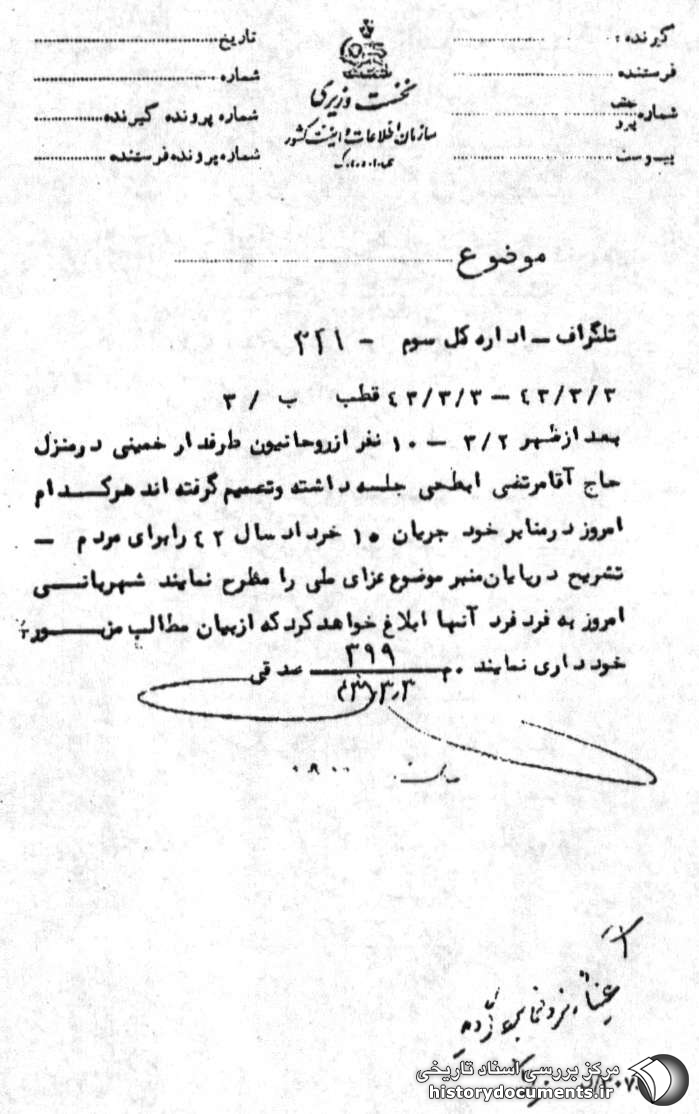 گیرنده :
فرستنده
شماره
پیوست
نخست وزیری
سازمان اطلاعات و امنیت کشور
س.ا.و.ا.ک
تاریخ
شماره
شماره پرونده گیرنده
شماره پرونده فرستنده
موضوع
تلگراف – اداره کل سوم - ۳۲۱
۴۳/۳/۳ – ۴۳/۳/۳ قطب ب / ۳
بعد از ظهر ۳/۲ – ۱۰ نفر از روحانیون طرفدار خمینی در منزل
حاج آقا مرتضی ابطحی جلسه داشته و تصمیم گرفته اند هرکدام
امروز در منابر خود جریان ۱۵ خرداد سال ۴۲ را برای مردم –
تشریح در پایان منبر موضوع عزای ملی را مطرح نمایند شهربانی
امروز به فرد فرد آنها ابلاغ خواهد کرد که از بیان مطالب مزبور
خودداری نمایند . م ۳۹۹ صدقی
۴۳/۳/۳
ساعت ۰۸۰۰
مرکز بررسی اسناد تاریخی
historydocuments.ir